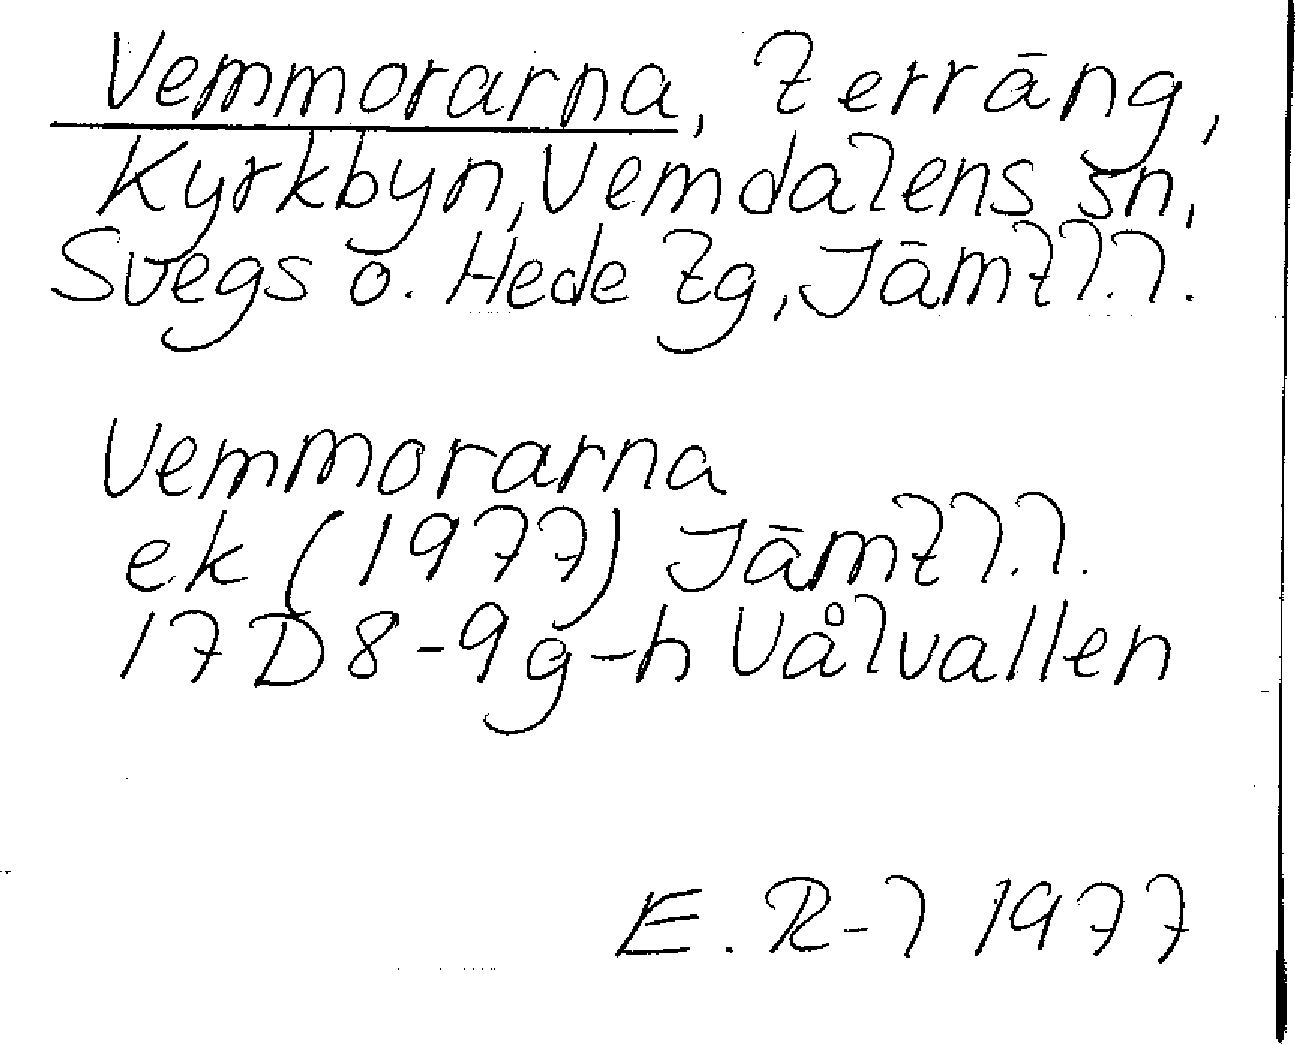 Vemmorarna, terräng,
Kyrkbyn, Vemdalens sn,
Svegs o. Hede tg, Jämtl.l.
Vemmorarna
ek (1977) Jämtl.l.
17D8-9g-h Vålvallen
E. R-l 1977